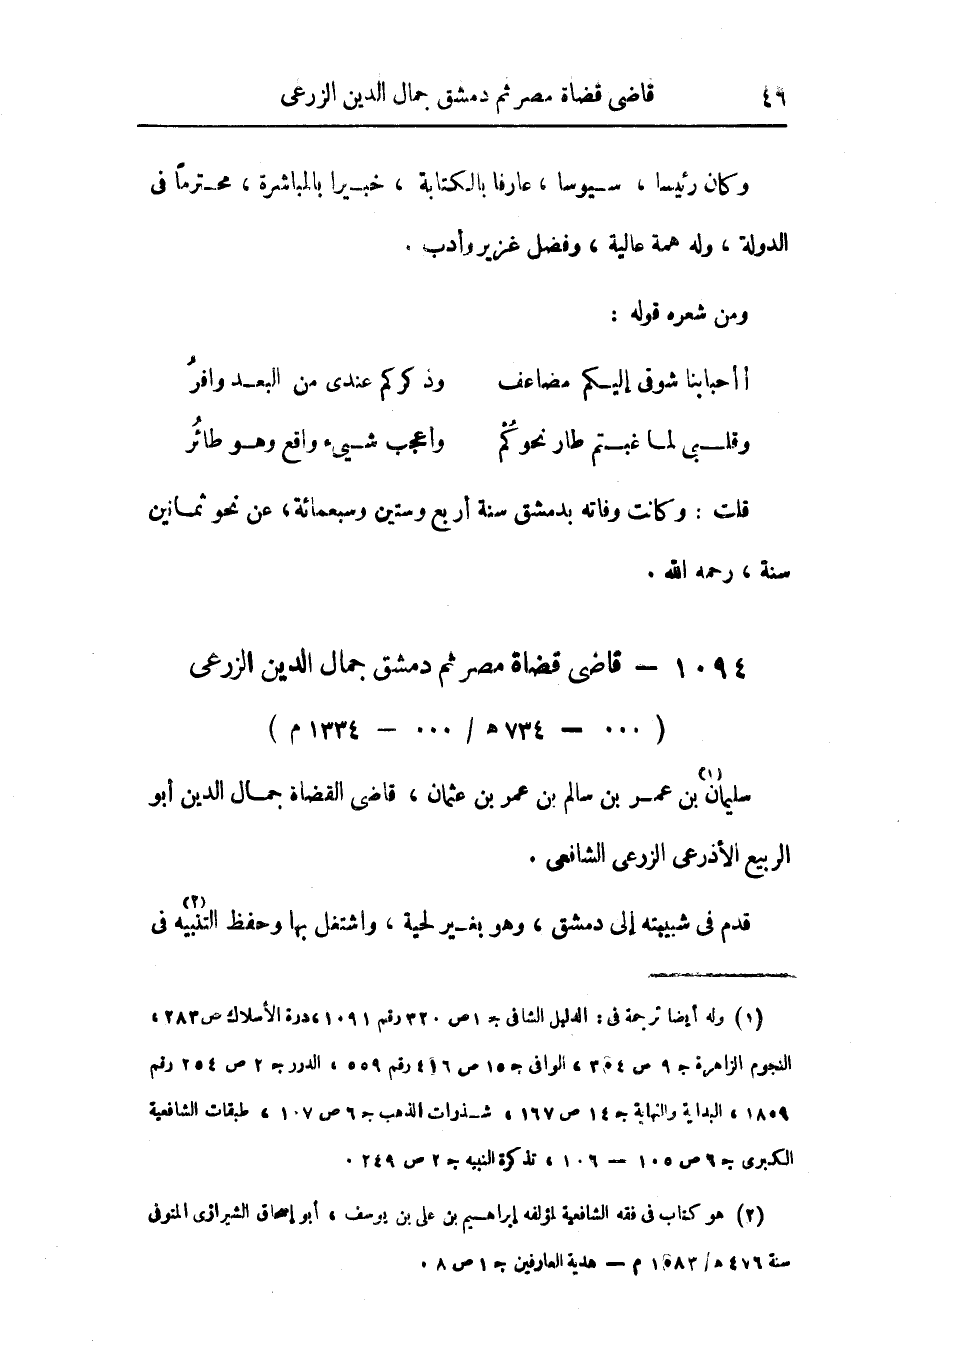 ٤٩ قاضى قضاة مصر ثم دمشق جمال الدين الزرعى
وكان رئيسا ، سيوسا ، عارفا بالكتابة ، خبيرا بالمباشرة ، محترماً فى
الدولة ، وله همة عالية ، وفضل غزير وأدب .
ومن شعره قوله :
أأحبابنا شوقى إليكم مضاعف وذكركم عندى من البعد وافرُ
وقلبى لما غبتم طار نحوكُمْ وأعجب شيىء واقع وهو طائرُ
قلت : وكانت وفاته بدمشق سنة أربع وستين وسبعمائة ، عن نحو ثمانين
سنة ، رحمه الله .
١٠٩٤ – قاضى قضاة مصر ثم دمشق جمال الدين الزرعى
( ... – ٧٣٤ ه / ... – ١٣٣٤ م )
سليمان(١) بن عمر بن سالم بن عمر بن عثمان ، قاضى القضاة جمال الدين أبو
الربيع الأذرعى الزرعى الشافعى .
قدم فى شبيبته إلى دمشق ، وهو بغير لحية ، واشتغل بها وحفظ التنبيه(٢) فى
(١) وله أيضا ترجمة فى : الدليل الشافى ج ١ ص ٣٢٠ رقم ١٠٩١ ، درة الأسلاك ص ٢٨٣ ،
النجوم الزاهرة ج ٩ ص ٣٠٤ ، الوافى ج ١٥ ص ٤١٦ رقم ٥٥٩ ، الدرر ج ٢ ص ٢٥٤ رقم
١٨٥٩ ، البداية والنهاية ج ١٤ ص ١٦٧ ، شذرات الذهب ج ٦ ص ١٠٧ ، طبقات الشافعية
الكبرى ج ٦ ص ١٠٥ – ١٠٦ ، تذكرة النبيه ج ٢ ص ٢٤٩ .
(٢) هو كتاب فى فقه الشافعية لمؤلفه إبراهيم بن على بن يوسف ، أبو إسحاق الشيرازى المتوفى
سنة ٤٧٦ ه / ١٠٨٣ م – هدية العارفين ج ١ ص ٨ .